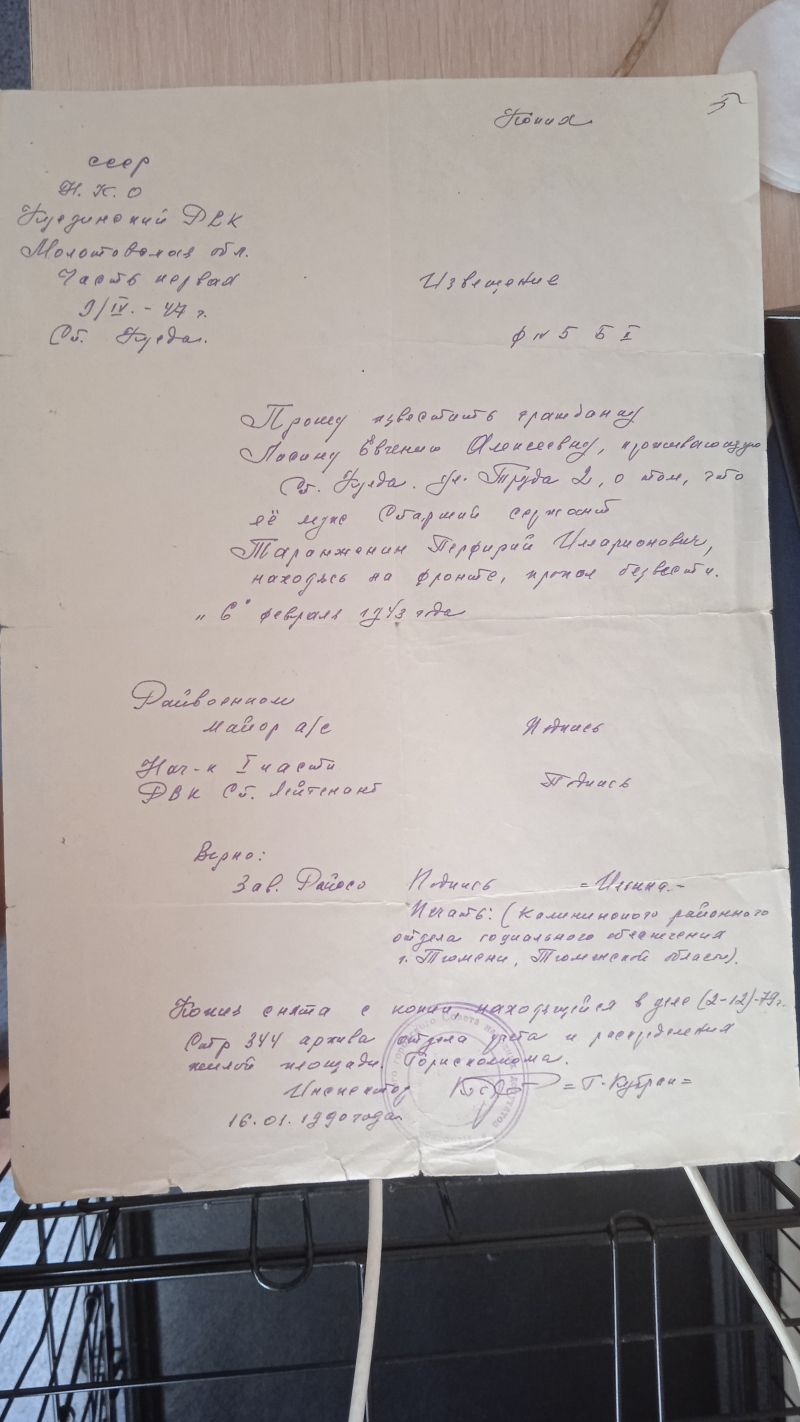 5
Копия
СССР
Н.К.О
Куединский РВК
Молотовская обл.
Часть первая
9/IV.-47 г.
Ст. Куеда.
Извещение
ф N 5 Б I
Прошу известить гражданку
Ласину Евгению Алексеевну, проживающую
Ст. Куеда. ул. Труда 2, о том, что
её муж Старший сержант
Таранженин Перфирий Илларионович,
находясь на фронте, пропал безвести.
"6" февраля 1943 года
Райвоенком
майор а/с
Подпись
Нач-к I части
РВК Ст. Лейтенант
Подпись
Верно:
Зав. Райсо Подпись =Ильина.-
Печать: (Калининского районного
отдела социального обеспечения
г. Тюмени, Тюменской области).
Копия снята с копии, находящейся в деле (2-12)-79г.
Стр 344 архива отдела учета и распределения
жилой площади. Горисполкома.
Инспектор = Г. =
16.01.1990 года.